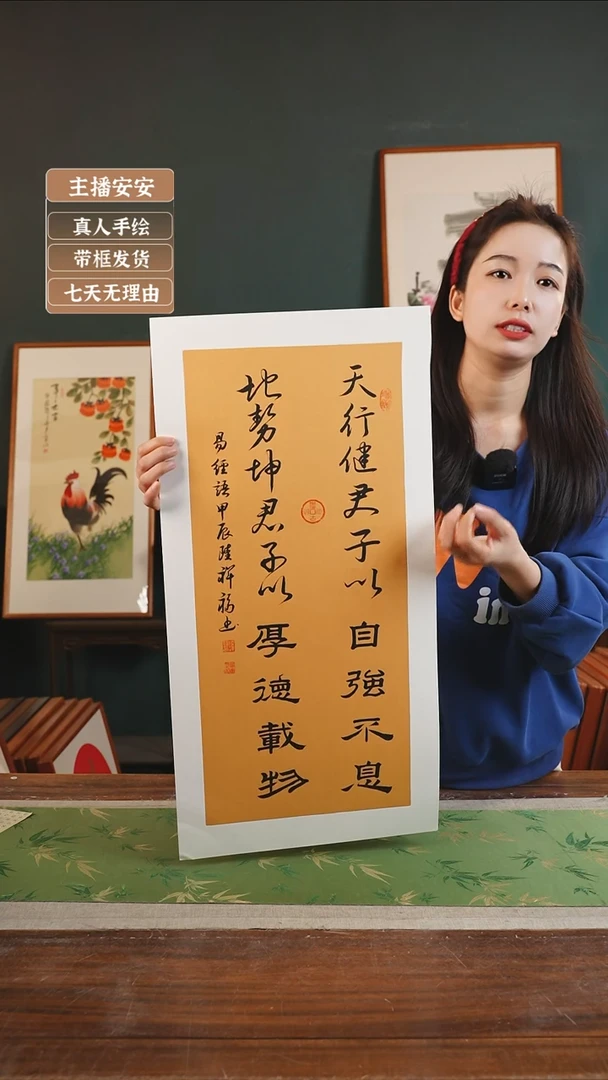 主播安安
真人手绘
带框发货
七天无理由
天行健君子以自強不息
地势坤君子以厚德載物
易經語甲辰陸祥福书
in